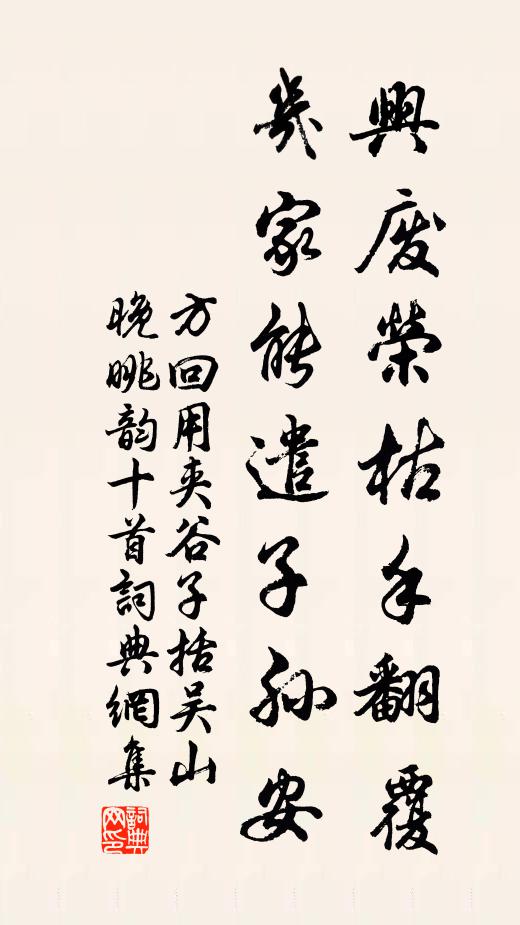 興廢榮枯手翻覆
幾家能遣子孫安
方回用夾谷子括吳山
晚眺韵十首詞典網集
詞典網印